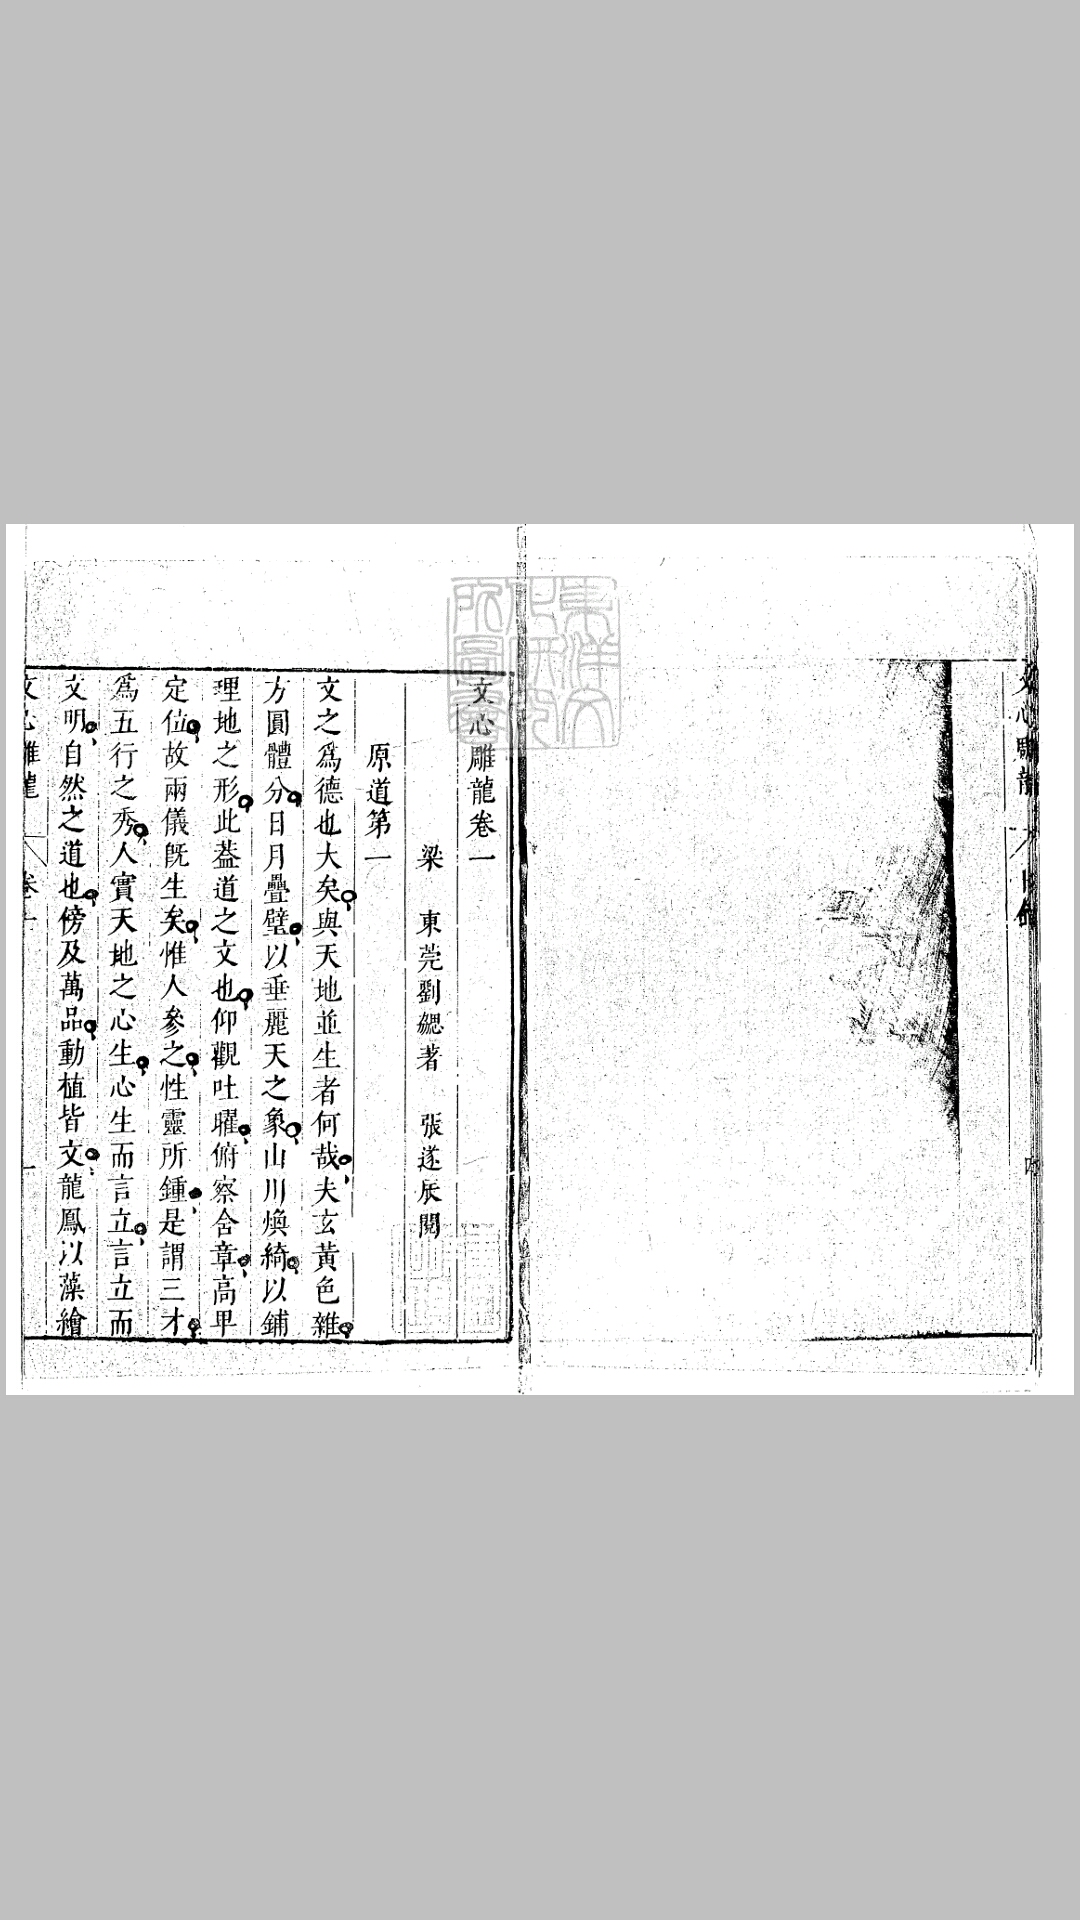 文心雕龍卷一
梁 東莞劉勰著 張遂辰閱
原道第一
文之爲德也大矣與天地並生者何哉夫玄黃色雜
方圓體分日月疊璧以垂麗天之象山川煥綺以鋪
理地之形此葢道之文也仰觀吐曜俯察含章高卑
定位故兩儀旣生矣惟人參之性靈所鍾是謂三才
爲五行之秀人實天地之心生心生而言立言立而
文明自然之道也傍及萬品動植皆文龍鳳以藻繪
文心雕龍 卷一 一